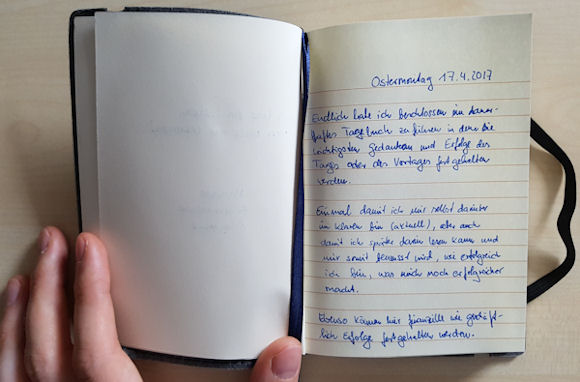 Ostermontag 17.4.2017
Endlich habe ich beschlossen ein dauer-
haftes Tagebuch zu führen in dem die
wichtigsten Gedanken und Erfolge des
Tages oder des Vortages festgehalten
werden.
Einmal damit ich mir selbst darüber
im klaren bin (aktuell), aber auch
damit ich später darin lesen kann und
mir somit bewusst wird, wie erfolgreich
ich bin, was mich noch erfolgreicher
macht.
Ebenso können hier finanzielle wie geschäft-
liche Erfolge festgehalten werden.